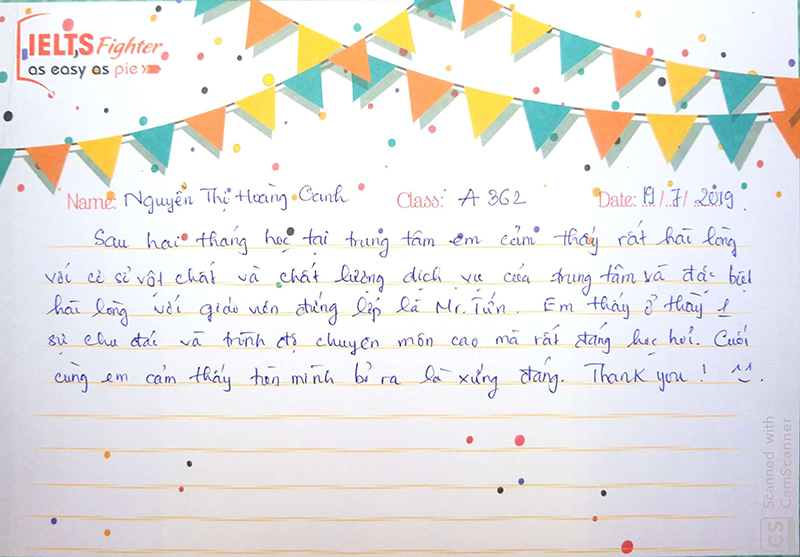 IELTS Fighter
as easy as pie
Name: Nguyễn Thị Hoàng Oanh Class: A 362 Date: 19/7/2019
Sau hai tháng học tại trung tâm em cảm thấy rất hài lòng
với cơ sở vật chất và chất lượng dịch vụ của trung tâm và đặc biệt
hài lòng với giáo viên đứng lớp là Mr. Tiến. Em thấy ở thầy 1
sự chu đáo và trình độ chuyên môn cao mà rất đáng học hỏi. Cuối
cùng em cảm thấy tiền mình bỏ ra là xứng đáng. Thank you! ^^.
CS Scanned with
CamScanner